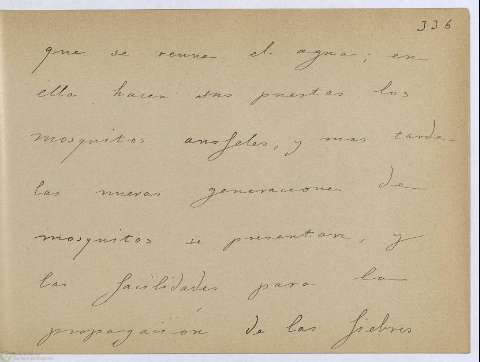 336
que se reune el agua; en
ella hacen sus puestas los
mosquitos anofeles, y mas tarde
las nuevas generaciones de
mosquitos se presentan, y
las facilidades para la
propagación de las fiebres